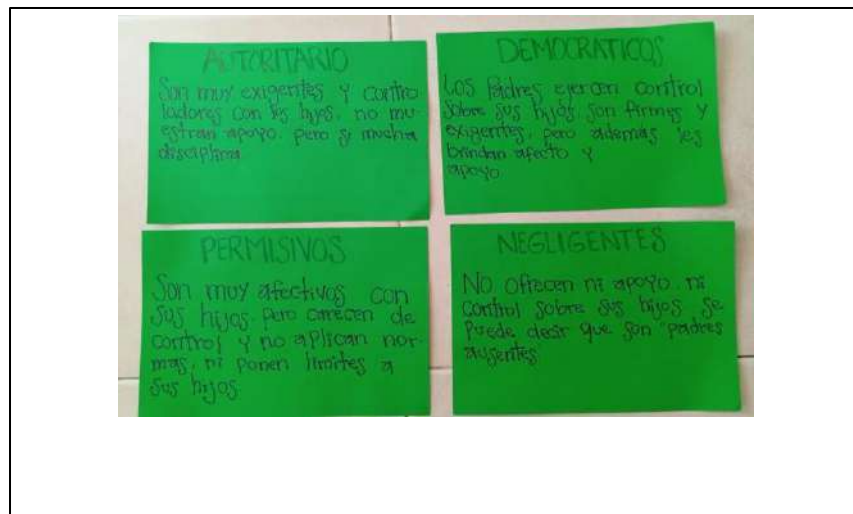 AUTORITARIO
Son muy exigentes y contro
ladores con los hijos, no mu-
estran apoyo. pero si mucha
disciplina
DEMOCRATICOS
Los Padres ejercen control
sobre sus hijos. son firmes y
exigentes, pero además les
brindan afecto y
apoyo.
PERMISIVOS
Son muy afectivos con
sus hijos. pero carecen de
control y no aplican nor-
mas, ni ponen limites a
sus hijos
NEGLIGENTES
No ofrecen ni apoyo. ni
control sobre sus hijos se
Puede decir que son "padres
ausentes"